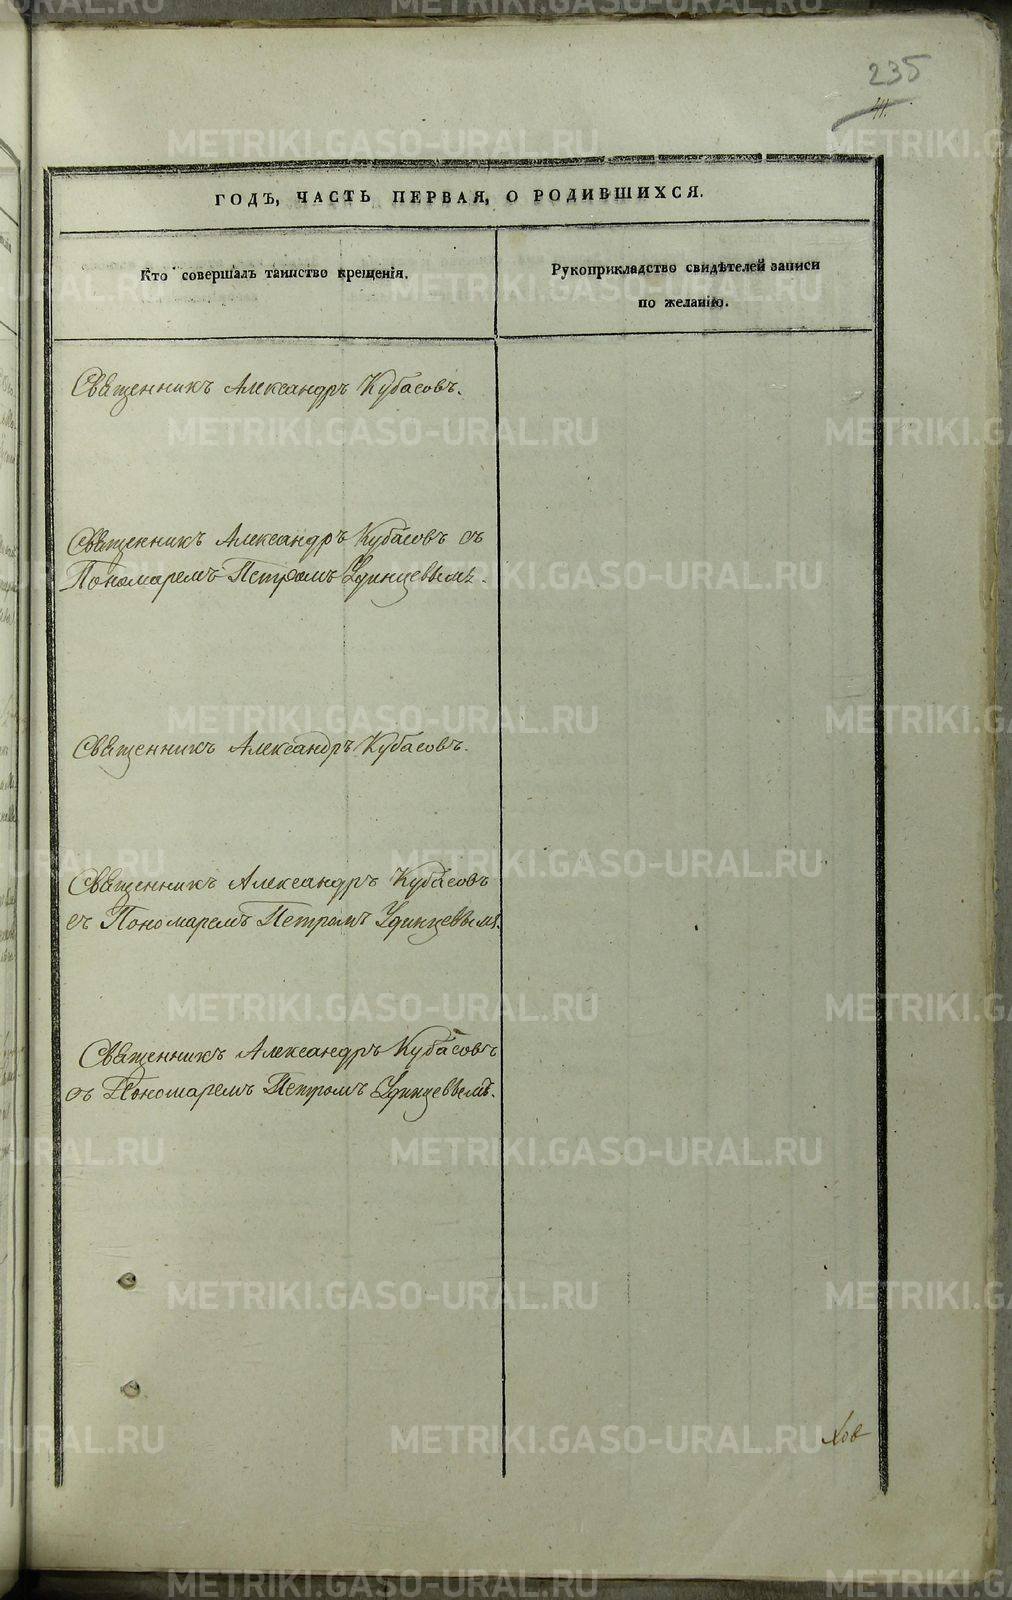 235
41.
ГОДЪ, ЧАСТЬ ПЕРВАЯ, О РОДИВШИХСЯ.
Кто совершалъ таинство крещенія.
Рукоприкладство свидѣтелей записи
по желанію.
Священникъ Александръ Кубасовъ.
Священникъ Александръ Кубасовъ съ
Пономаремъ Петромъ Удинцевымъ.
Священникъ Александръ Кубасовъ.
Священникъ Александръ Кубасовъ
съ Пономаремъ Петромъ Удинцевымъ.
Священникъ Александръ Кубасовъ
съ Пономаремъ Петромъ Удинцевымъ.
METRIKI.GASO-URAL.RU